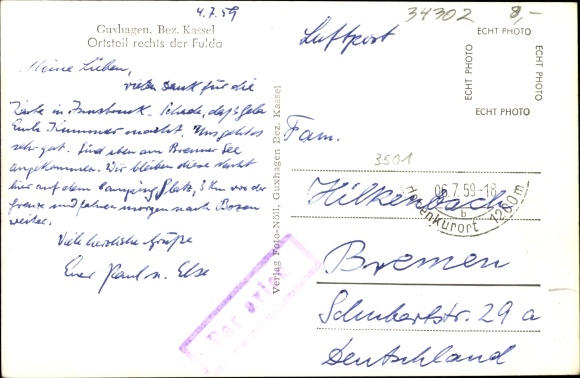 4.7.59
34302
8,-
Guxhagen. Bez. Kassel
Ortsteil rechts der Fulda
Luftpost
ECHT PHOTO
ECHT PHOTO
ECHT PHOTO
ECHT PHOTO
Meine Lieben,
vielen Dank für die
Karte in Innsbruck. Schade, daß Gela
Euch Kummer macht. Uns geht es
sehr gut. Sind eben am Brenner See
angekommen. Wir bleiben diese Nacht
hier auf dem Campingplatz, 3 Km vor der
Grenze und fahren morgen nach Bozen
weiter.
Viele herzliche Grüße
Euer Paul u. Else
Verlag Foto-Nöll, Guxhagen Bez. Kassel
Par avion
Fam.
3501
06.7.59-18
b
Höhenkurort 1200m
Hilkenbach
Bremen
Schubertstr. 29 a
Deutschland